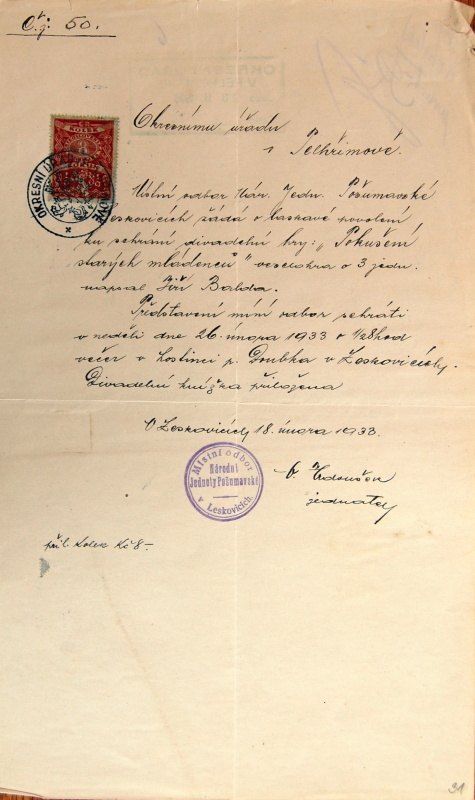 Č.j: 50.
Okresnímu úřadu
v Pelhřimově.
Místní odbor Nár. Jedn. Pošumavské
v Leskovicích žádá o laskavé povolení
ku sehrání divadelní hry: „Pokušení
starých mládenců" veselohra o 3 jedn.
napsal Jiří Balda.
Představení míní odbor sehráti
v neděli dne 26. února 1933 o ½8 hod
večer v hostinci p. Doubka v Leskovicích.
Divadelní knížka přiložena
V Leskovicích 18. února 1933.
Místní odbor
Národní
Jednoty Pošumavské
v Leskovicích.
jednatel
příl. kolek Kč 8–
OKRESNÍ ÚŘAD
31